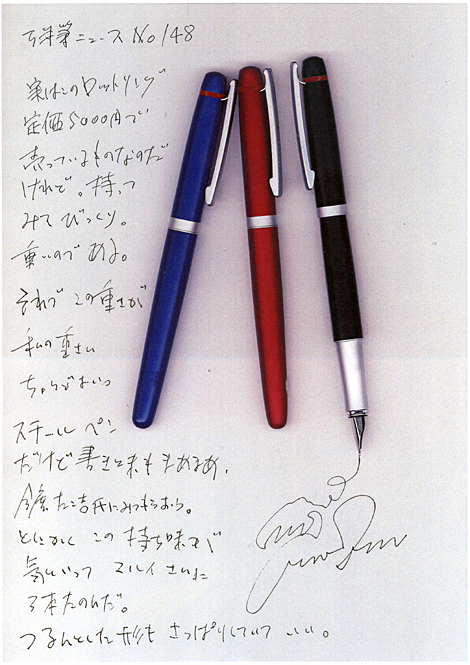 万年筆ニュース No 148
実はこのロットリング
定価5000円で
売っているものなのだ
けれど。持って
みてびっくり。
重いのである。
それでこの重さが
私の重さに
ちょうどよい
スチールペン
だけど書き味もまあまあ、
にみつもらおう。
とにかく この持ち味が
気にいって マルイさんに
3本たのんだ。
つるんとした形も さっぱりしていて いい。